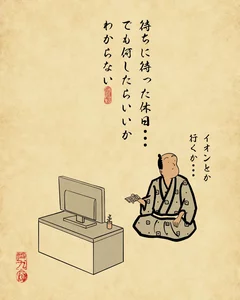 待ちに待った休日・・・
でも何したらいいか
わからない
イオンとか
行くか・・・